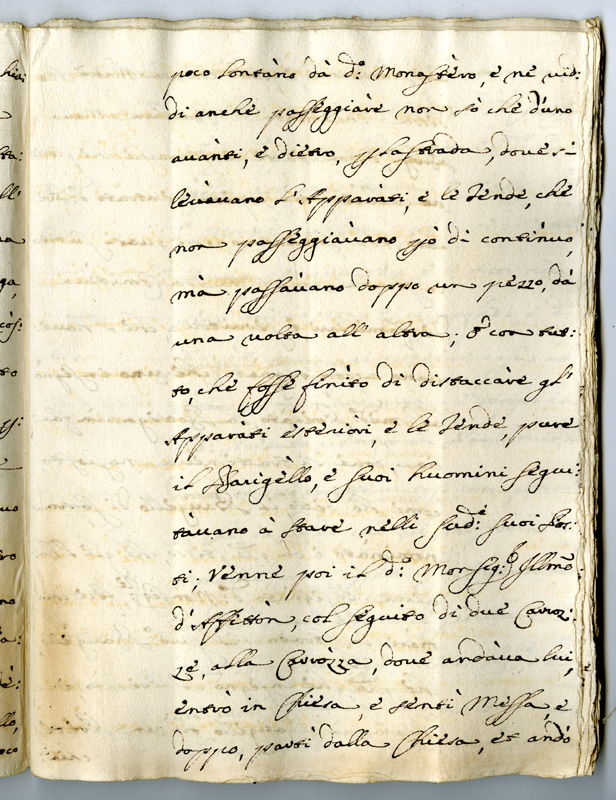 poco lontàno dà d.º Monastèro, e ne vid:
di anche passeggiàre non sò che d'uno
avànti, e dietro, p la strada, dove si
levàvano l'Apparàti, e le Tende, che
non passeggiàvano pò di contìnuo,
mà passàvano doppo un pezzo, dà
una volta all'altra; con tut:
to, che fosse finìto di distaccàre gl'
Apparàti esteriòri, e le Tende, pure
il Barigèllo, e suoi huomini segui:
tàvano à stare nelli sud.ᵉ suoi Pos:
ti; Venne poi il d.º Monsig.ʳ Illmõ
d'Afflitto, col seguito di due Carroz:
ze, alla Carròzza, dove andàva lui,
entrò in Chiesa, e sentì Messa, e
doppo, partì dalla Chiesa, et andò